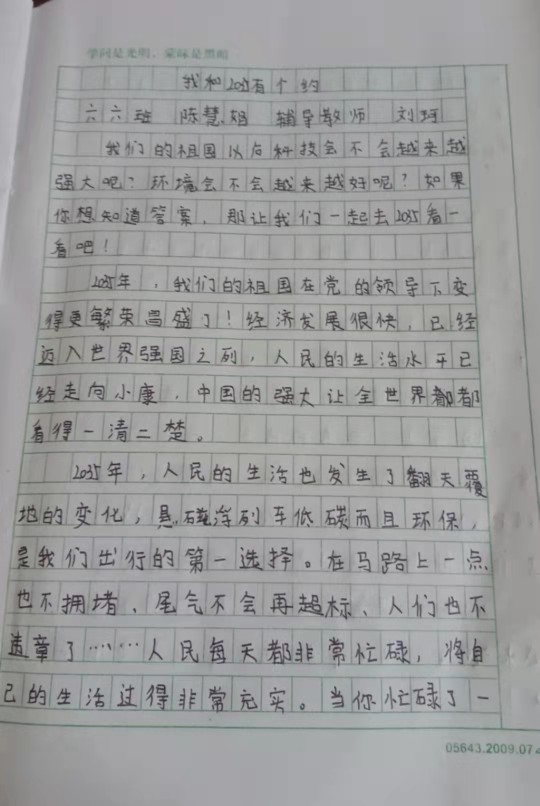 学问是光明，蒙昧是黑暗
我和2035有个约
六六班 陈慧娟 辅导教师 刘珂
我们的祖国以后科技会不会越来越
强大呢？环境会不会越来越好呢？如果
你想知道答案，那让我们一起去2035看一
看吧！
2035年，我们的祖国在党的领导下变
得更繁荣昌盛了！经济发展很快，已经
迈入世界强国之列，人民的生活水平已
经走向小康，中国的强大让全世界都都
看得一清二楚。
2035年，人民的生活也发生了翻天覆
地的变化，悬磁浮列车低碳而且环保，
是我们出行的第一选择。在马路上一点
也不拥堵、尾气不会再超标、人们也不
违章了……人民每天都非常忙碌，将自
己的生活过得非常充实。当你忙碌了一
05643.2009.07